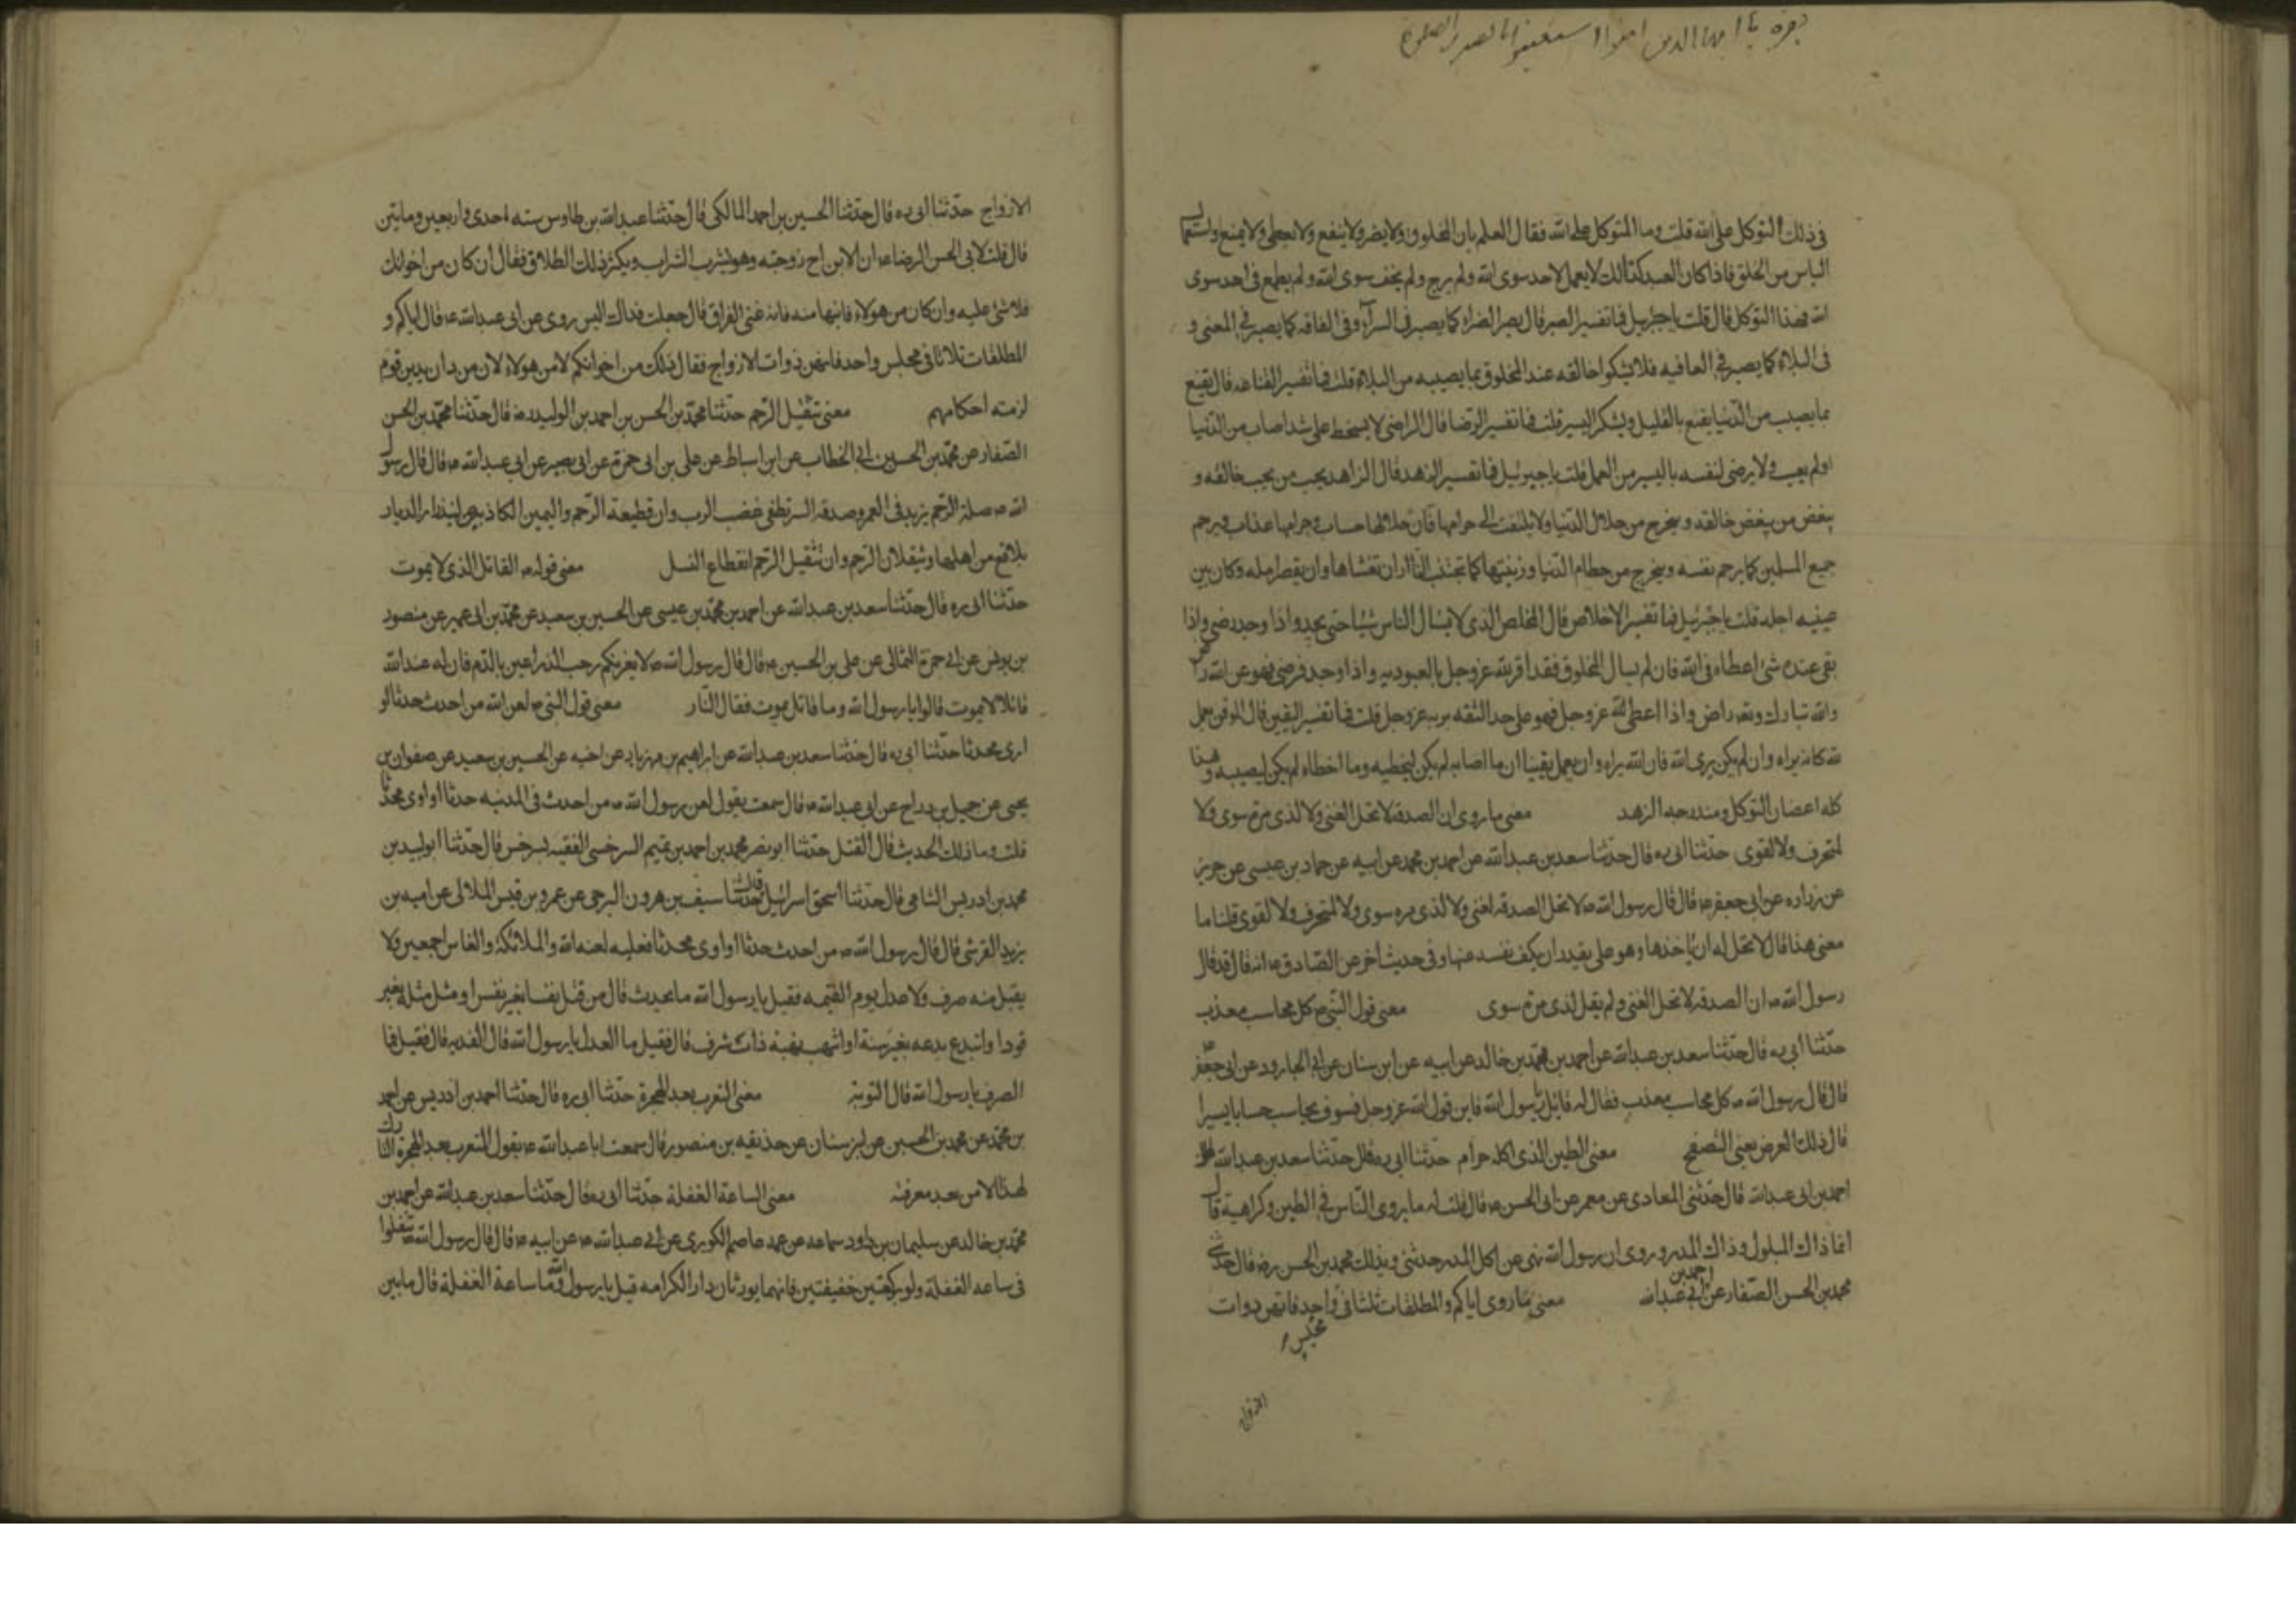 بقره يا ايها الذين امنوا استعينوا بالصبر والصلوة
فى ذلك التوكل على الله قلت وما التوكل على الله فقال العلم بان المخلوق ولا يضر ولا ينفع ولا يعطى ولا يمنع واستعمال
الياس من الخلق فاذا كان العبد كذلك لا يعمل لاحد سوى الله ولم يرج ولم يخف سوى الله ولم يطمع فى احد سوى
الله فهذا التوكل قال قلت يا جبرئيل فما تفسير الصبر قال يصبر الضراء كما يصبر فى السرآء وفى الفاقه كما يصبر فى المعنى و
فى البلاء كما يصبر فى العافيه فلا يشكوا خالقه عند المخلوق بما يصيبه من البلاء قلت فما تفسير القناعه قال يقنع
بما يصيب من الدنيا يقنع بالقليل ويشكر اليسير قلت فما تفسير الرضا قال الراضى لا يسخط على سيد اصاب من الدنيا
اولم يصب ولا يرضى لنفسه باليسير من العمل قلت يا جبرئيل فما تفسير الزهد قال الزاهد يحب من يحب خالقه و
يبغض من يبغض خالقه ويتحرج من حلال الدنيا ولا يلتفت الى حرامها فان حلالها حساب وحرامها عذاب ويرحم
جميع المسلمين كما يرحم نفسه ويتحرج من حطام الدنيا وزينتها كما يتجنب النار ان تغشاها وان يقصر امله وكان بين
عينيه اجله قلت يا جبرئيل فما تفسير الاخلاص قال المخلص الذى لا يسال الناس شيئا حتى يجد واذا وجد رضى واذا
بقى عنده شئ اعطاه فى الله فان لم يسال المخلوق فقد اقر لله عز وجل بالعبوديه واذا وجد فرضى فهو عن الله راض
والله تبارك وتعه راض واذا اعطى لله عز وجل فهو على حد الثقه بربه عز وجل قلت فما تفسير اليقين قال الموقن يعمل
لله كانه يراه وان لم يكن يرى الله فان الله يراه وان يعمل يقينا ان ما اصابه لم يكن ليخطيه وما اخطاه لم يكن ليصيبه وهذا
كله اعضان التوكل ومندرحه الزهد معنى ما روى ان الصدقه لا تحل لغنى ولا لذى مرة سوى ولا
لمتحرف ولا لقوى حدثنا ابى ره قال حدثنا سعد بن عبدالله عن احمد بن محمد عن ابيه عن حماد بن عيسى عن حريز
عن زراره عن ابى جعفر ع قال قال رسول الله ص لا تحل الصدقه لغنى ولا لذى مره سوى ولا لمتحرف ولا لقوى قلنا ما
معنى هذا قال لا تحل له ان ياخذها وهو على يقدر ان يكف نفسه عنها وفى حديث اخر عن الصادق ع انه قال قد قال
رسول الله ص ان الصدقه لا تحل لغنى ولم يقل لذى مرة سوى معنى قول النبى ص كل محاسب معذب
حدثنا ابى ره قال حدثنا سعد بن عبدالله عن احمد بن محمد بن خالد عن ابيه عن ابن سنان عن ابى الجارود عن ابى جعفر
قال قال رسول الله ص كل محاسب معذب فقال له قائل يا رسول الله فاين قول الله عز وجل فسوف يحاسب حسابا يسيرا
قال ذلك العرض يعنى التصفح معنى الطين الذى اكله حرام حدثنا ابى ره قال حدثنا سعد بن عبدالله
احمد بن ابى عبدالله قال حدثنى المعادى عن معمر عن ابى الحسن ع قال قلت له ما يروى الناس فى الطين وكراهية قال
انما ذاك المبلول وذاك المدر وروى ان رسول الله نهى عن اكل المدر حدثنى بذلك محمد بن الحسن رضه قال حدثنى
محمد بن الحسن الصفار عن احمد بن ابى عبدالله معنى ما روى اياكم والمطلقات ثلثا فى واحد فانهن ذوات
مجلس
الازواج
الازواج حدثنا ابى ره قال حدثنا الحسين بن احمد المالكى قال حدثنا عبدالله بن طاوس سنه احدى واربعين ومايتين
قال قلت لابى الحسن الرضا ع ان لابن اخ زوجته وهو يشرب الشراب ويكثر ذلك الطلاق فقال ان كان من اخوانك
فلا شئ عليه وان كان من هولاء فانتها منه فانه عنى الفراق قال جعلت فداك اليس روى عن ابى عبدالله ع قال اياكم و
المطلقات ثلاثا فى مجلس واحد فانهن ذوات الازواج فقال ذلك من اخوانكم لا من هولاء لان من دان بدين قوم
لزمته احكامهم معنى تثقيل الرحم حدثنا محمد بن الحسن بن احمد بن الوليد رضه قال حدثنا محمد بن الحسن
الصفار عن محمد بن الحسين ابى الخطاب عن ابن اسباط عن على بن ابى حمزة عن ابى بصير عن ابى عبدالله ع قال قال رسول
الله ص صلة الرحم يزيد فى العمر وصدقه السر تطفى غضب الرب وان قطيعة الرحم واليمين الكاذبه لتذران الديار
بلاقع من اهلها ويثقلان الرحم وان تثقيل الرحم انقطاع النسل معنى قوله ص القاتل الذى لا يموت
حدثنا ابى ره قال حدثنا سعد بن عبدالله عن احمد بن محمد بن عيسى عن الحسين بن سعيد عن محمد بن ابى عمير عن منصور
بن يونس عن ابى حمزة الثمالى عن على بن الحسين ع قال قال رسول الله ص لا يغرنكم رحب الذراعين بالدم فان له عند الله
قاتلا لا يموت قالوا يا رسول الله وما قاتل يموت فقال النار معنى قول النبى ص لعن الله من احدث حدثا او
اوى محدثا حدثنا ابى ره قال حدثنا سعد بن عبدالله عن ابراهيم بن مهزيار عن اخيه عن الحسين بن سعيد عن صفوان بن
يحيى عن جميل بن دراج عن ابى عبدالله ع قال سمعت يقول لعن رسول الله ص من احدث فى المدينه حدثا او اوى محدثا
قلت وما ذلك الحديث قال القتل حدثنا ابو نصر محمد بن احمد بن تميم السرخسى الفقيه بسرخس قال حدثنا ابو لبيد بن
محمد بن ادريس الشامى قال حدثنا اسحق اسرائيل قال حدثنا سيف بن هرون البرجمى عن عمرو بن قيس الملالى عن اميه بن
يزيد القرشى قال قال رسول الله ص من احدث حدثا او اوى محدثا فعليه لعنه الله والملائكة والناس اجمعين ولا
يقبل منه صرف ولا عدل يوم القيمه فقيل يا رسول الله ما يحدث قال من قتل نفسا بغير نفس او مثل مثلة بغير
قودا وابتدع بدعه بغير سنة او انتهب نهبة ذات شرف قال فقيل ما العدل يا رسول الله قال الفديه قال فقيل فما
الصرف يا رسول الله قال التوبة معنى التعرب بعد الهجرة حدثنا ابى ره قال حدثنا احمد بن ادريس عن احمد
بن محمد عن محمد بن الحسين عن ابن سنان عن حذيفه بن منصور قال سمعت ابا عبدالله ع يقول المتعرب بعد الهجرة التارك
لهذا الامر بعد معرفته معنى الساعة الغفلة حدثنا ابى ره قال حدثنا سعد بن عبدالله عن احمد بن
محمد بن خالد عن سليمان بن داود سماعه عن عمه عاصم الكورى عن ابى عبدالله ع عن ابيه ع قال قال رسول الله ص تنفلوا
فى ساعه الغفلة ولو بركعتين خفيفتين فانهما يورثان دار الكرامه قيل يا رسول الله وما ساعة الغفلة قال ما بين